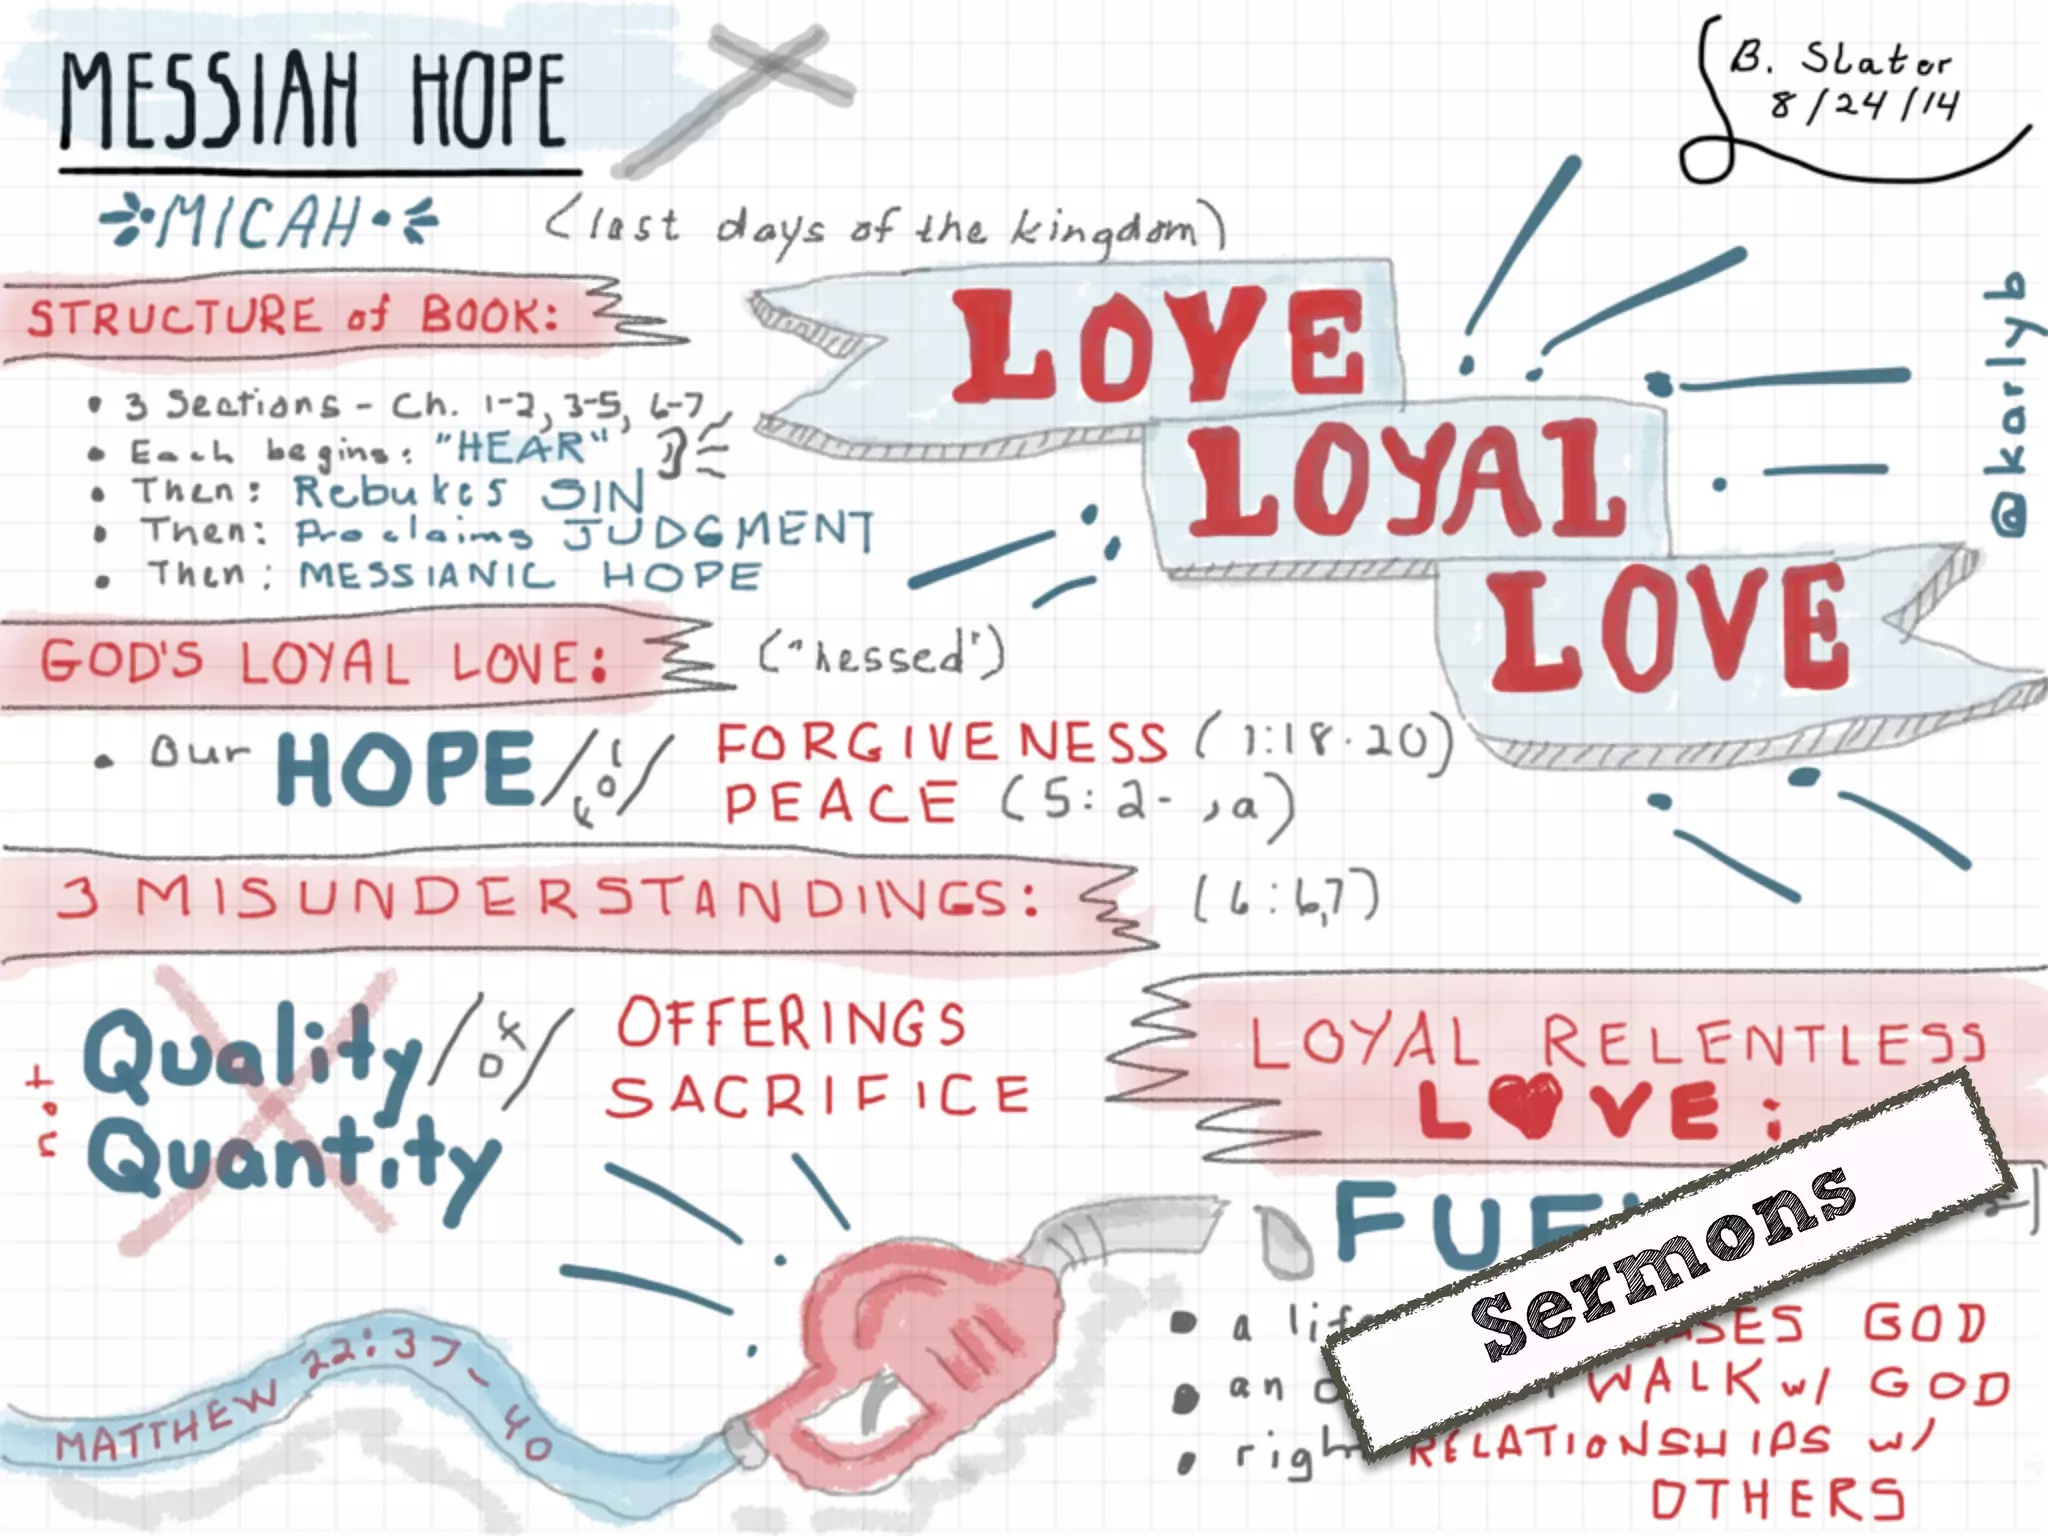 MESSIAH HOPE
B. Slater
8/24/14
MICAH
(last days of the kingdom)
@karlyb
STRUCTURE of BOOK:
• 3 Sections - Ch. 1-2, 3-5, 6-7
• Each begins: "HEAR"
• Then: Rebukes SIN
• Then: Proclaims JUDGMENT
• Then: MESSIANIC HOPE
LOVE
LOYAL
LOVE
GOD'S LOYAL LOVE: ("hessed")
• Our HOPE / of / FORGIVENESS (7:18-20)
PEACE (5:2- ,a)
3 MISUNDERSTANDINGS: (6:6,7)
not
Quality / of / OFFERINGS
Quantity SACRIFICE
LOYAL RELENTLESS
LOVE:
Sermons
• a
GOD
• an WALK w/ GOD
• RELATIONSHIPS w/
OTHERS
MATTHEW 22:37-40